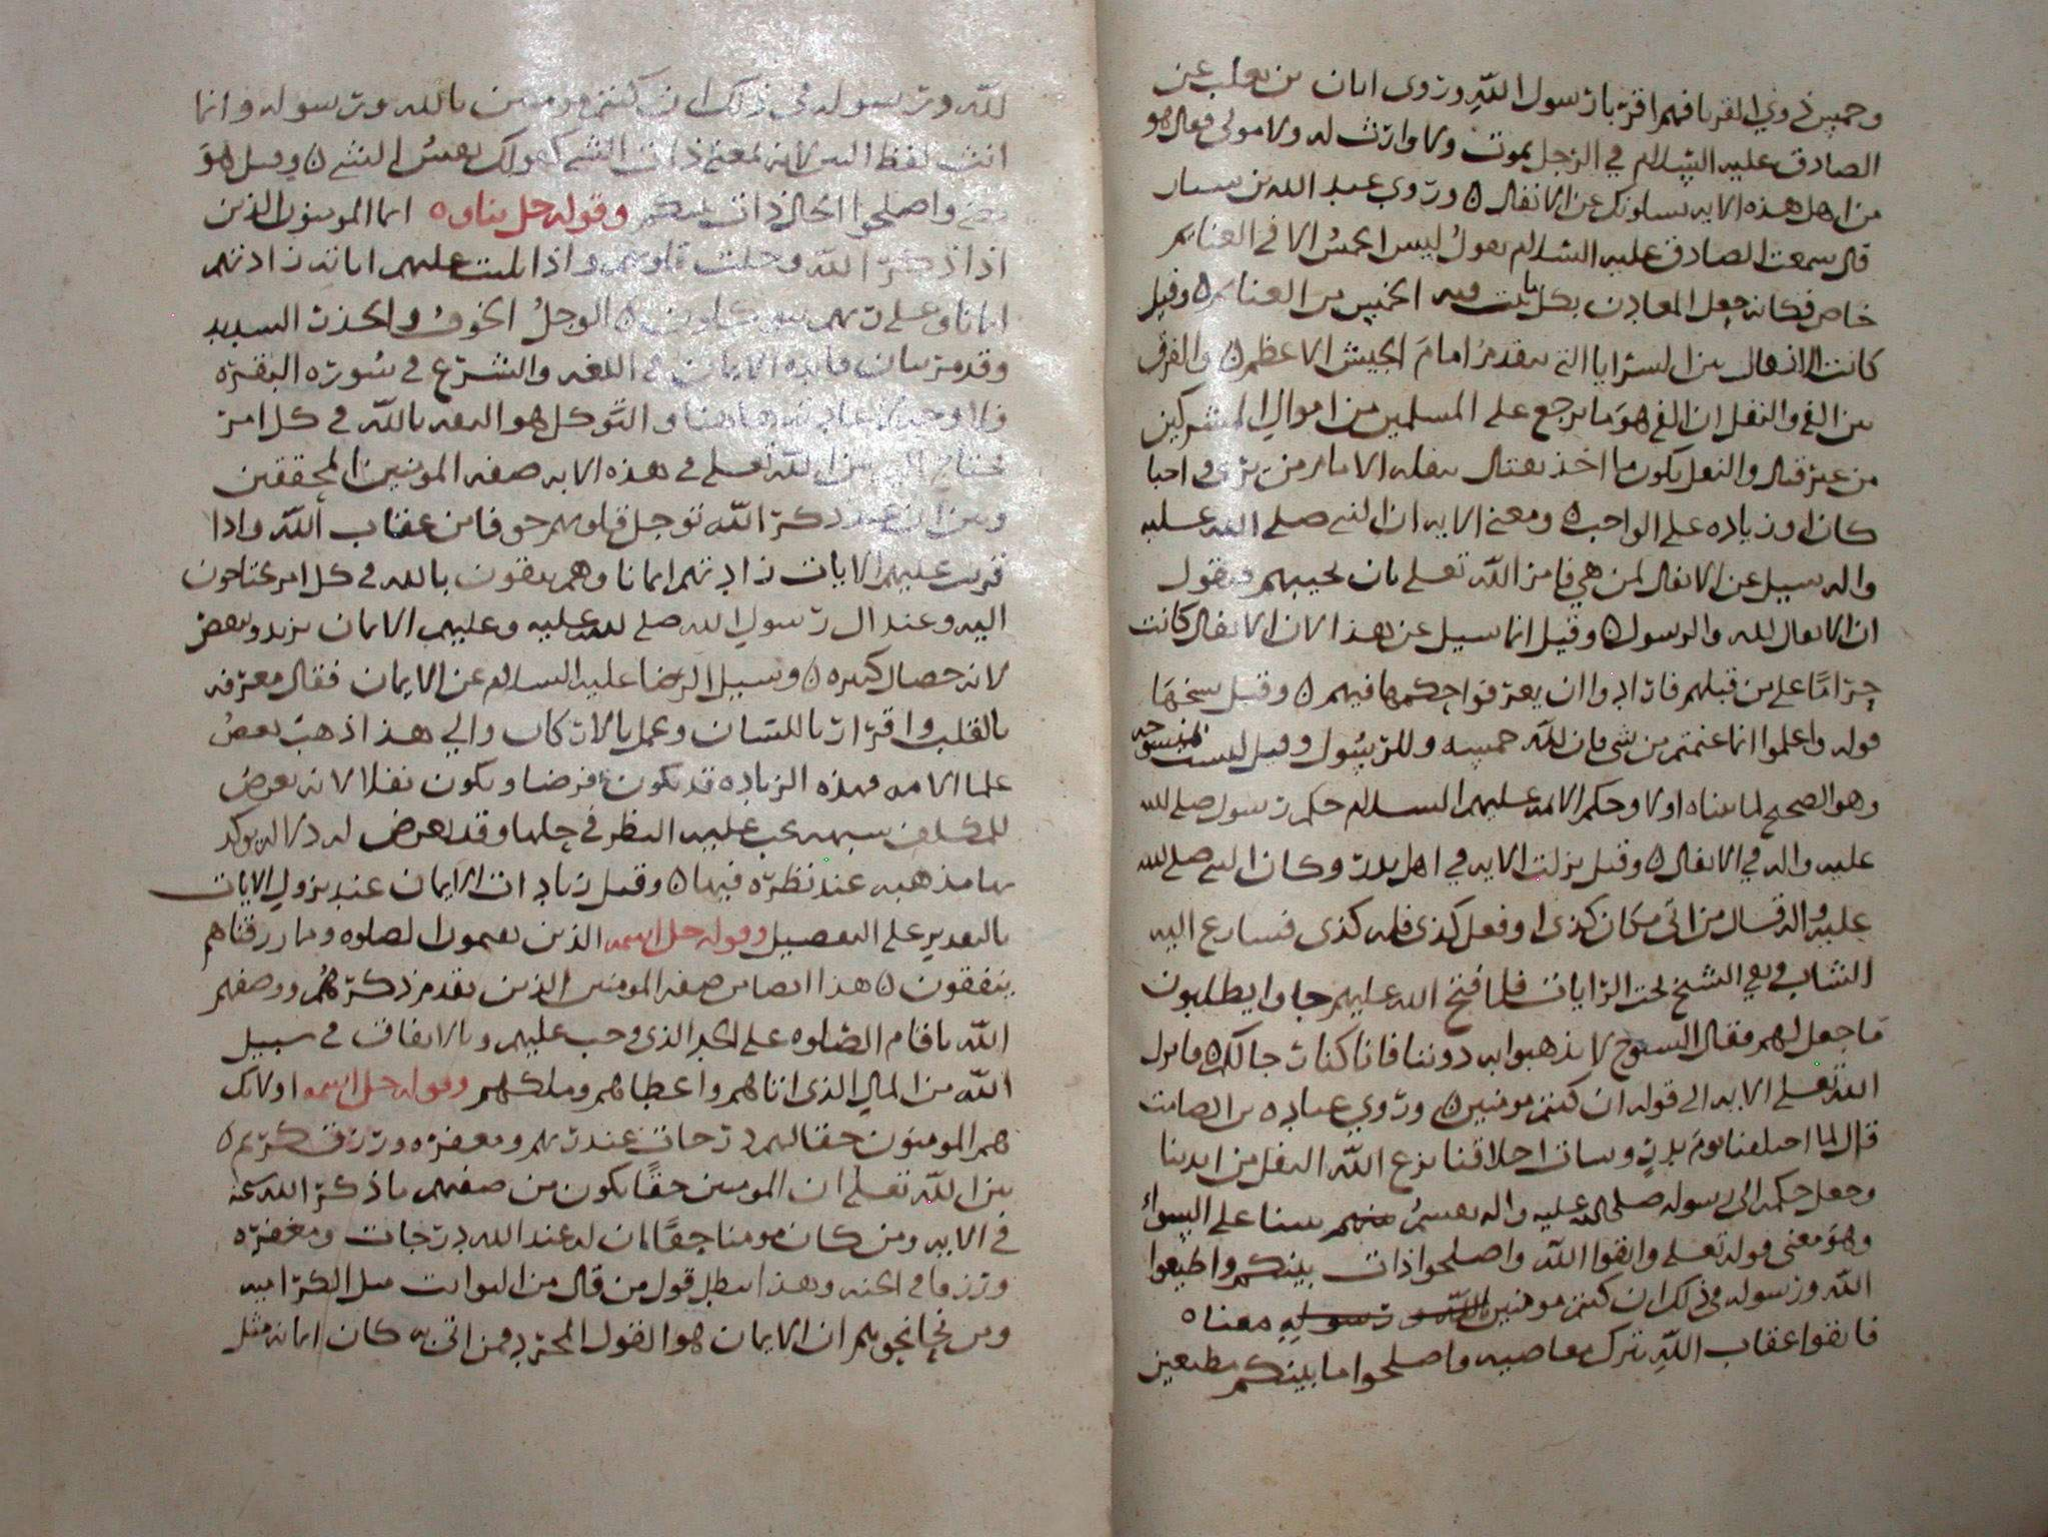 وخمس ذوي القربا فهم اقربا رسول الله وروى ابان بن تغلب عن
الصادق عليه السلام في الرجل يموت ولا وارث له ولا مولى فقال هو
من اهل هذه الايه يسلونك عن الانفال ٥ وروي عبد الله بن سنان
قال سمعت الصادق عليه السلام يقول ليس الخمس الا في الغنايم
خاص فكانه جعل المعادن بكل ما يثبت فيه الخمس من الغنايم ٥ وقيل
كانت الانفال من السرايا التي تتقدم امام الجيش الاعظم ٥ والفرق
بين الفي والنفل ان الفي هو ما يرجع على المسلمين من اموال المشركين
من غير قتال والنفل يكون ما اخذ بقتال ينفله الامام من يرى احبا
كان او زياده على الواجب ٥ ومعنى الايه ان النبي صلى الله عليه
واله سيل عن الانفال لمن هي فامر الله تعلى بان يجيبهم فيقول
ان الانفال لله والرسول ٥ وقيل انما سيل عن هذا لان الانفال كانت
حراما على من قبلهم فارادوا ان يعرفوا حكمها فيهم ٥ وقيل نسخها
قوله واعلموا انما غنمتم من شي فان لله خمسه وللرسول وقيل ليست بمنسوخه
وهو الصحيح لما بيناه اولا وحكم الايمه عليهم السلام حكم رسول صلى الله
عليه واله في الانفال ٥ وقيل نزلت الايه في اهل بدر وكان النبي صلى الله
عليه واله قال من اتى مكان كذى او فعل كذى فله كذى فتسارع اليه
الشاب وبقي الشيخ تحت الرايات فلما فتح الله عليهم جاوا يطلبون
ما جعل لهم فقال الشيوخ لا تذهبوا به دوننا فانا كنا رجا لكم ٥ فانزل
الله تعلى الايه الى قوله ان كنتم مومنين ٥ وروي عباده بن الصامت
قال لما اختلفنا يوم بدر وساءت اخلاقنا نزع الله النفل من ايدينا
وجعل حكمه الى رسوله صلى الله عليه واله يقسم منهم بيننا على السواء
وهو معنى قوله تعلى واتقوا الله واصلحوا ذات بينكم واطيعوا
الله ورسوله في ذلك ان كنتم مومنين الله ورسوله معناه
فاتقوا عقاب الله بترك معاصيه واصلحوا ما بينكم مطيعين
لله ورسوله في ذلك ان كنتم مومنين بالله ورسوله وانما
انث لفظ البين لانه بمعنى ذات الشي كقولك نفس الشي ٥ وقيل هو
بمعنى واصلحوا الحال ذات بينكم وقوله جل ثناوه انما المومنون الذين
اذا ذكر الله وجلت قلوبهم واذا تليت عليهم اياته زادتهم
ايمانا وعلى ربهم يتوكلون ٥ الوجل الخوف والحذر الشديد
وقد مر بيان فايده الايمان في اللغه والشرع في سوره البقره
فلا وجه لاعادته هاهنا والتوكل هو الثقه بالله في كل امر
يحتاج اليه بين الله تعلى في هذه الايه صفه المومنين المحققين
وبين ان عند ذكر الله توجل قلوبهم خوفا من عقاب الله واذا
قريت عليهم الايات زادتهم ايمانا وهم يثقون بالله في كل امر يحتاجون
اليه وعند ال رسول الله صلى الله عليه وعليهم الايمان يزيد وينقص
لانه خصال كثيره ٥ وسيل الرضا عليه السلام عن الايمان فقال معرفه
بالقلب واقرار باللسان وعمل بالاركان والى هذا ذهب بعض
علما الامه فهذه الزياده قد تكون فرضا وتكون نفلا لانه يعرض
للمكلف شبهه يجب عليه النظر في حلها وقد يعرض له دلاله يوكد
بها مذهبه عند نظره فيها ٥ وقيل زيادات الايمان عند نزول الايات
بالتقدير على التفصيل وقوله جل اسمه الذين يقيمون الصلوه ومما رزقناهم
ينفقون ٥ هذا ايضا من صفه المومنين الذين تقدم ذكرهم ووصفهم
الله باقام الصلوه على الحد الذي وجب عليهم وبالانفاق في سبيل
الله من المال الذي اتاهم واعطاهم وملكهم وقوله جل اسمه اولايك
هم المومنون حقا لهم درجات عند ربهم ومغفره ورزق كريم ٥
بين الله تعلى ان المومنين حقا يكون من صفتهم ما ذكر الله عنه
في الايه ومن كان مومنا حقا فان له عند الله درجات ومغفره
ورزقا في الجنه وهذا يبطل قول من قال من النوابت مثل الكراميه
ومن نحا نحوهم ان الايمان هو القول المجرد فمن اتى به كان ايمانه مثل